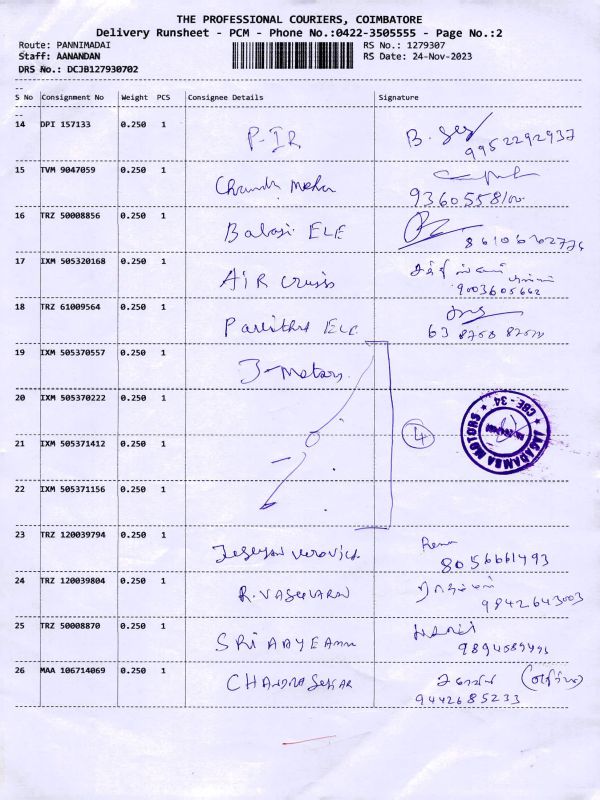 THE PROFESSIONAL COURIERS, COIMBATORE
Delivery Runsheet - PCM - Phone No.:0422-3505555 - Page No.:2
Route: PANNIMADAI RS No.: 1279307
Staff: AANANDAN RS Date: 24-Nov-2023
DRS No.: DCJB127930702
S No Consignment No Weight PCS Consignee Details Signature
14 DPI 157133 0.250 1 P-IR
9952292937
15 TVM 9047059 0.250 1
16 TRZ 50008856 0.250 1 Balaji ELE
17 IXM 505320168 0.250 1 AIR
9003605662
18 TRZ 61009564 0.250 1 ELE
19 IXM 505370557 0.250 1 J-Motors
20 IXM 505370222 0.250 1
21 IXM 505371412 0.250 1 4
JAGADAMBA MOTORS
CBE - 34
22 IXM 505371156 0.250 1
23 TRZ 120039794 0.250 1
8056661493
24 TRZ 120039804 0.250 1 R.VASEEVARAN
9842643003
25 TRZ 50008870 0.250 1 SRI
26 MAA 106714069 0.250 1 CHANDRASEKAR
9442685233